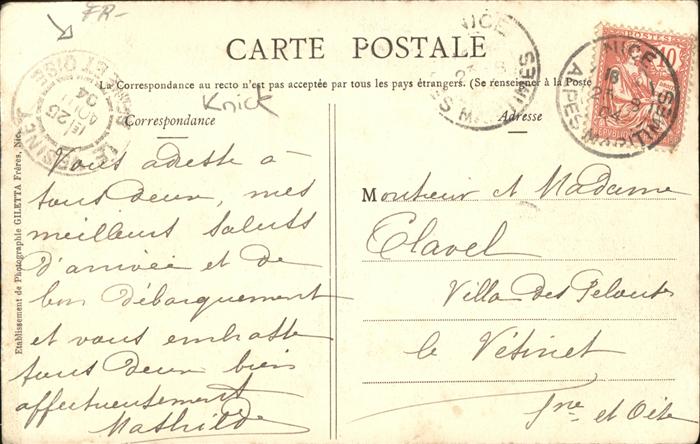 FR-
CARTE POSTALE
La Correspondance au recto n'est pas acceptée par tous les pays étrangers. (Se renseigner à la Poste
Knick
Correspondance
Adresse
Vous adresse à
tous deux, mes
meilleurs saluts
d'arrivée et de
bon débarquement
et vous embrasse
tous deux bien
affectueusement
Mathilde
Monsieur et Madame
Clavel
Villa des
le Vésinet
Sne et Oise
Etablissement de Photographie GILETTA Frères, Nice
LE VESINET
SEINE ET OISE
25
04
NICE
ALPES MARITIMES
NICE
ALPES MARITIMES
POSTES
10
REPUBLIQUE